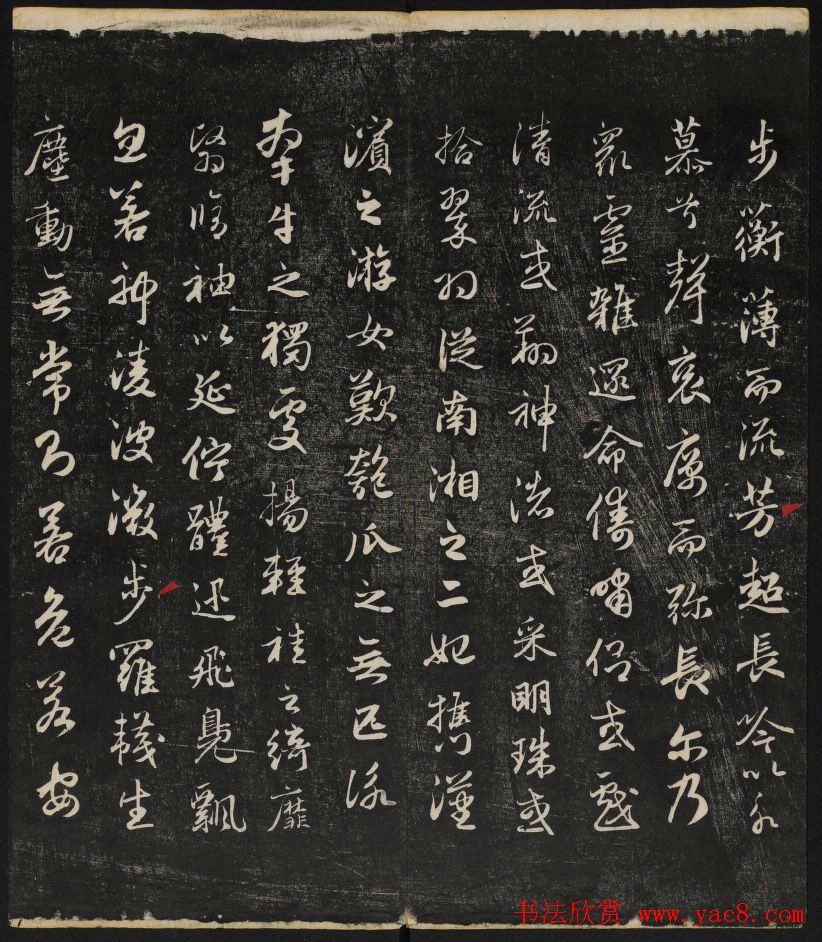 步蘅薄而流芳超長吟以永
慕兮聲哀厲而弥長尓乃
眾靈雜遝命儔嘯侶或戲
清流或翔神渚或采明珠或
拾翠羽從南湘之二妃攜漢
濱之游女歎匏瓜之無匹詠
牽牛之獨處揚輕袿之綺靡
翳脩袖以延佇體迅飛鳧飄
忽若神淩波微步羅韈生
塵動無常則若危若安
书法欣赏 www.yac8.com